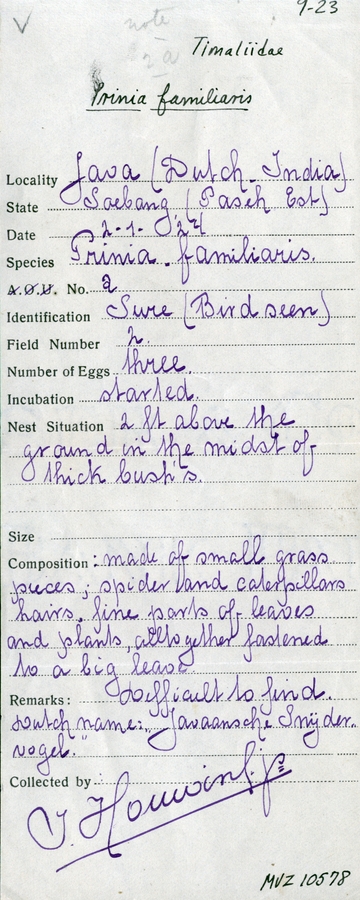 9-23
note
2a
Timaliidae
Prinia familiaris
Locality Java (Dutch. India)
State Soebang (Paseh Est)
Date 2-1-'24
Species Prinia familiaris.
A.O.U. No. a
Identification Sure (Bird seen)
Field Number 2.
Number of Eggs three.
Incubation started.
Nest Situation 2 ft above the
ground in the midst of
thick bush's.
Size
Composition: made of small grass
pieces; spider and caterpillars
hairs, fine parts of leaves
and plants, alltogether fastened
to a big leave
Remarks: Difficult to find.
Dutch name: "Javaansche Snijder-
vogel."
Collected by:
MVZ 10578